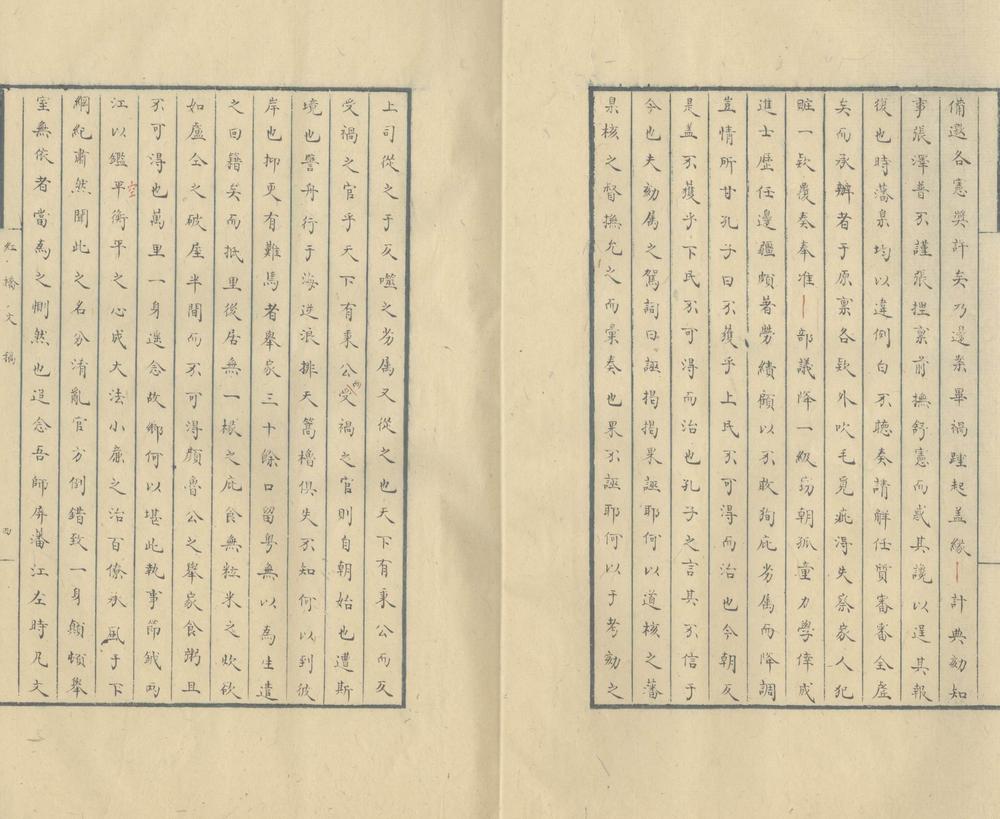 備邀各憲獎許矣乃邊案畢禍踵起盖緣計典劾知
事張澤普不謹張捏稟前撫舒憲而惑其讒以逞其報
復也時藩臬均以違例白不聽奏請解任質審審全虛
矣而承辦者于原稟各欵外吹毛覓疵得失察家人犯
賍一欵覆奏奉准部議降一級窃朝孤童力學倖成
進士歷任邊疆頗著勞績顧以不敢狥庇劣属而降調
豈情所甘孔子曰不獲乎上民不可得而治也今朝反
是盖不獲乎下民不可得而治也孔子之言其不信于
今也夫劾属之駕詞曰誣揭揭果誣耶何以道核之藩
臬核之督撫允之而彙奏也果不誣耶何以于考劾之
上司從之于反噬之劣属又從之也天下有秉公而反
受禍之官乎天下有秉公而受禍之官則自朝始也遭斯
境也譬舟行于海逆浪排天篙櫓俱失不知何以到彼
岸也抑更有難焉者舉家三十餘口留粤無以為生遣
之回籍矣而抵里後居無一椽之庇食無粒米之炊欲
如盧仝之破屋半間而不可得顏魯公之舉家食粥且
不可得也萬里一身遥念故鄉何以堪此執事節鉞两
江以鑑平空衡平之心成大法小廉之治百僚承風于下
綱紀肅然聞此之名分淆亂官方倒錯致一身顛頓舉
室無依者當為之惻然也追念吾師屏藩江左時凡文
紅橋文稿
四